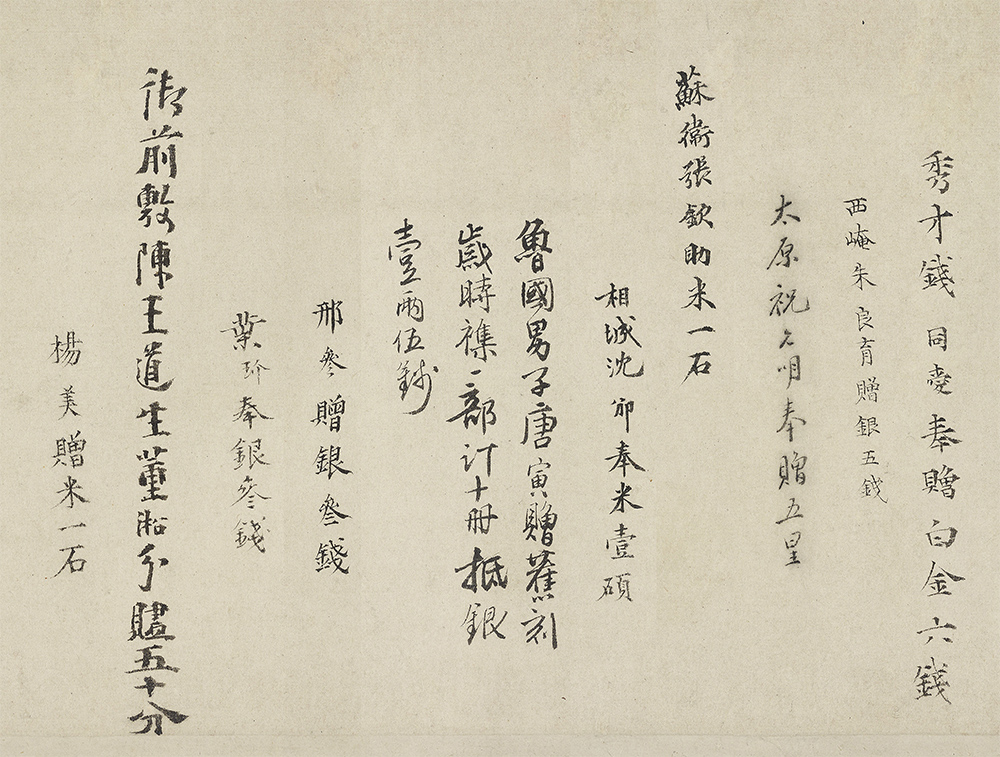 秀才錢同愛奉贈白金六錢
西崦朱良育贈銀五錢
太原祝允明奉贈五星
蘇衛張欽助米一石
相城沈邠奉米壹碩
魯國男子唐寅贈舊刻
歲時襍一部訂十冊抵銀
壹兩伍錢
邢叅贈銀叄錢
葉玠奉銀叄錢
御前敷陳王道生董淞分贐五十分
楊美贈米一石